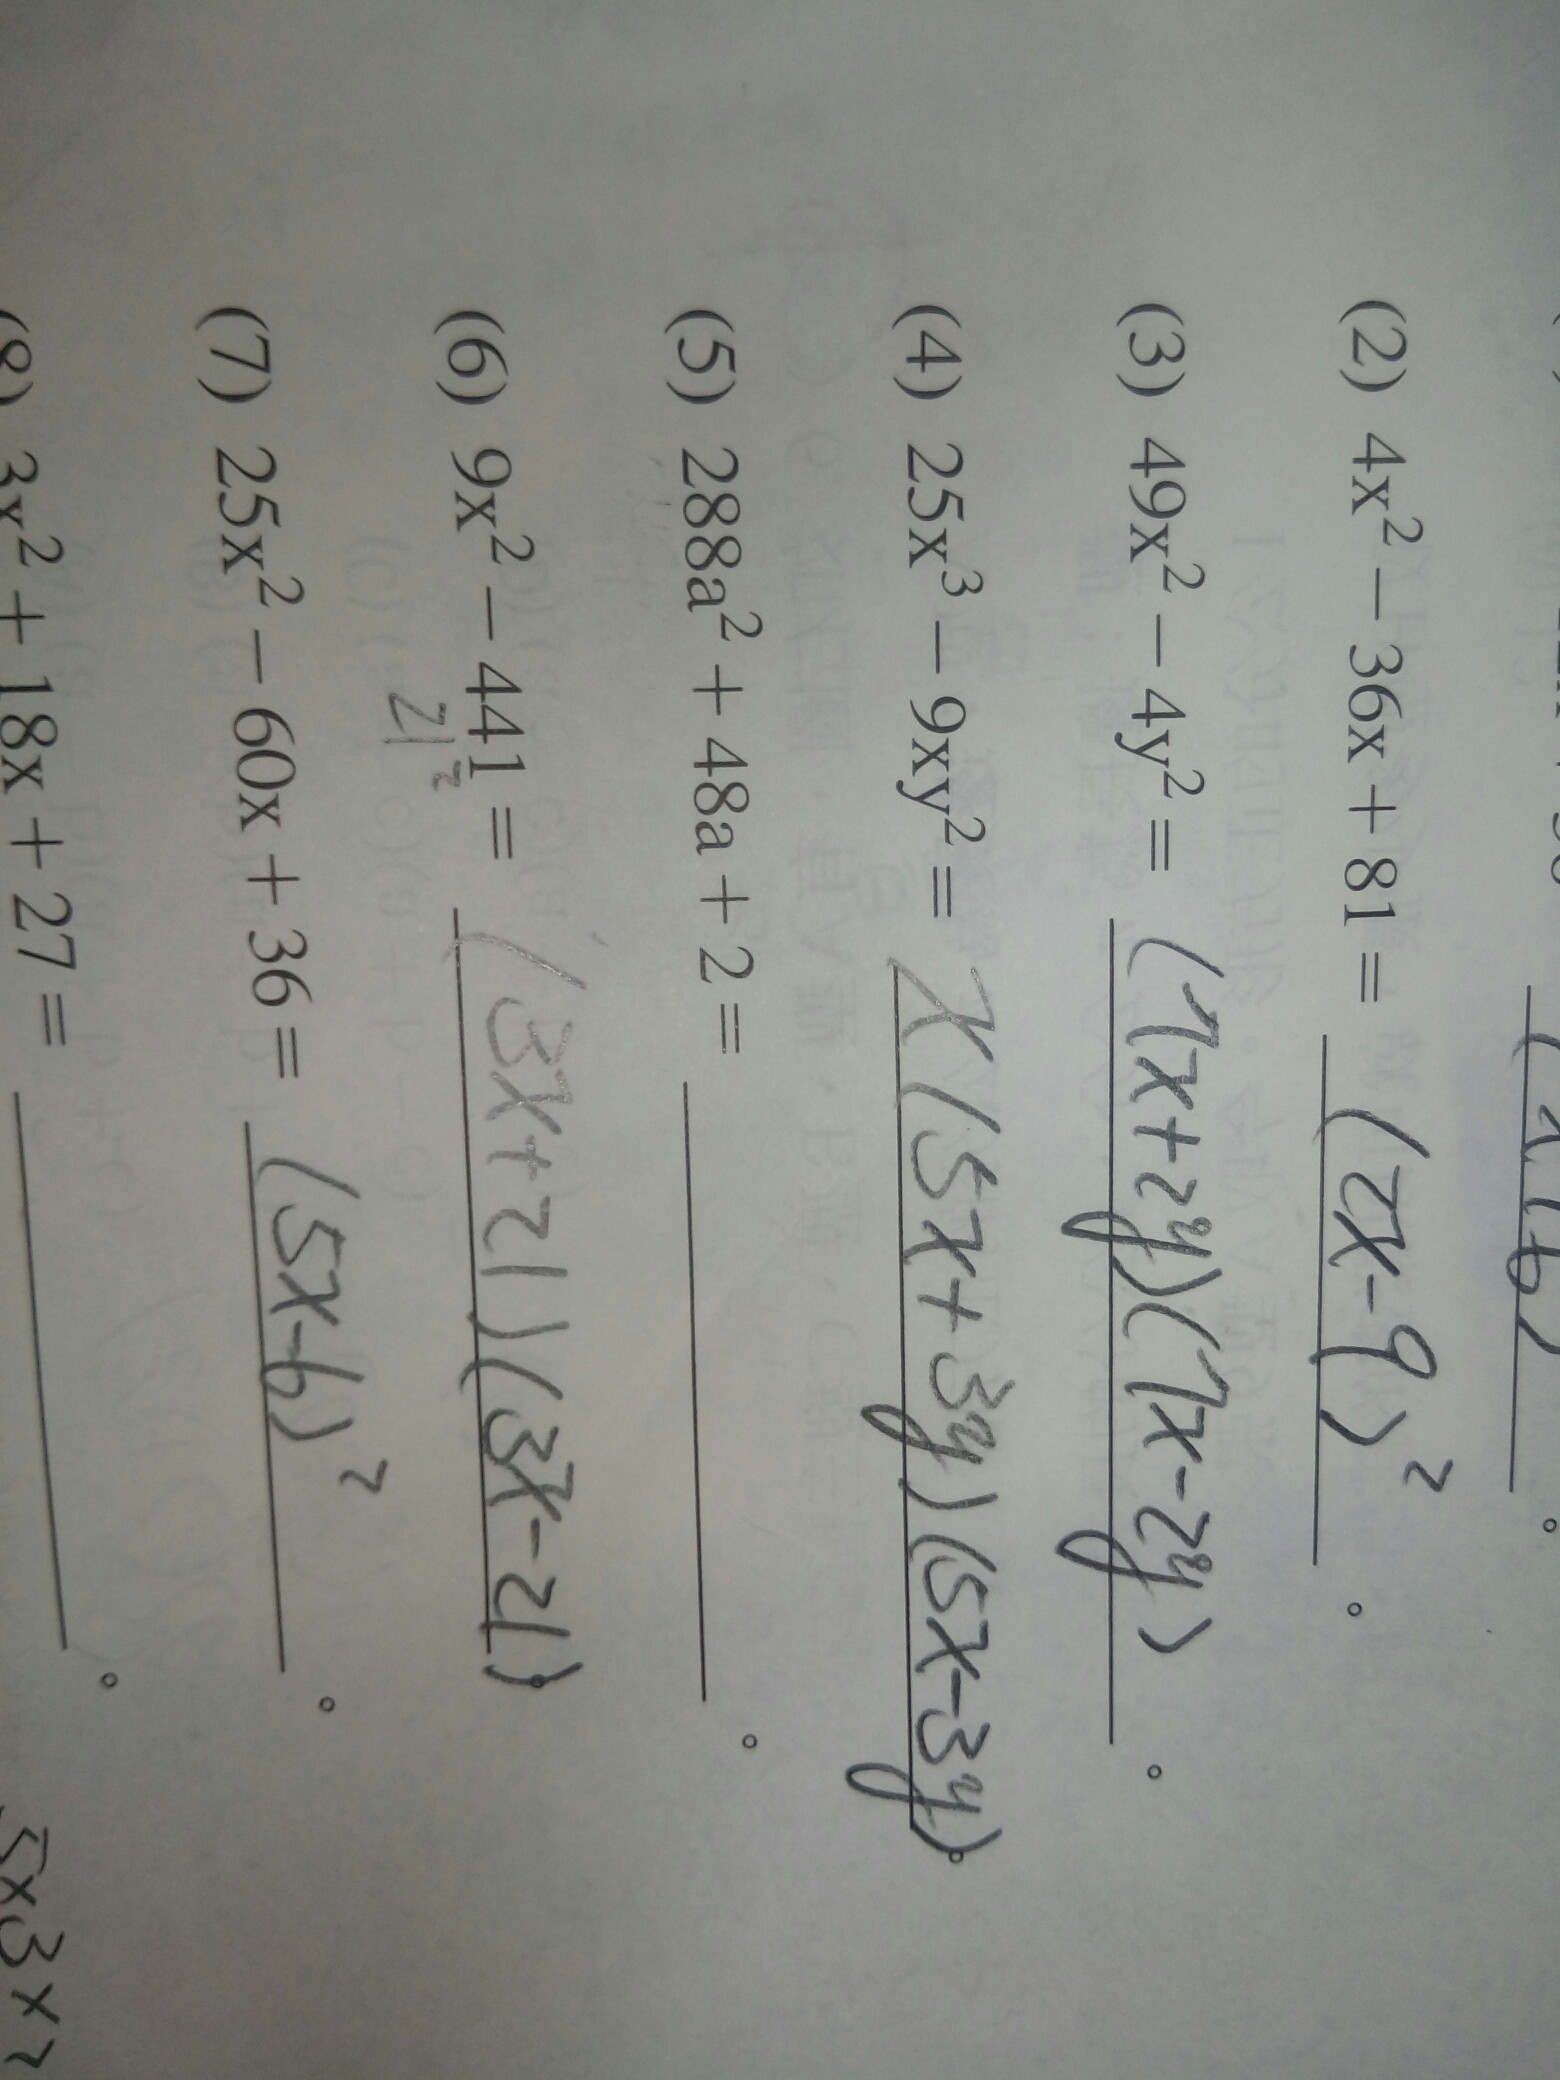 (2) 4x² − 36x + 81 = (2x-9)² 。
(3) 49x² − 4y² = (7x+2y)(7x-2y) 。
(4) 25x³ − 9xy² = x(5x+3y)(5x-3y)。
(5) 288a² + 48a + 2 = 。
(6) 9x² − 441 = (3x+21)(3x-21)。
21²
(7) 25x² − 60x + 36 = (5x-6)² 。
(8) 3x² + 18x + 27 = 。
5x3x